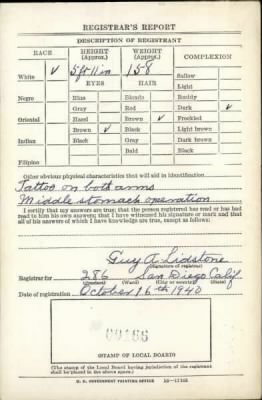 REGISTRAR'S REPORT
DESCRIPTION OF REGISTRANT
RACE
HEIGHT (Approx.)
WEIGHT (Approx.)
COMPLEXION
White ✓
5 ft 11 in
158
Sallow
EYES
HAIR
Light
Negro
Blue
Blonde
Ruddy
Gray
Red
Dark ✓
Oriental
Hazel
Brown ✓
Freckled
Brown ✓
Black
Light brown
Indian
Black
Gray
Dark brown
Bald
Black
Filipino
Other obvious physical characteristics that will aid in identification
Tattoo on both arms
Middle stomach operation
I certify that my answers are true; that the person registered has read or has had
read to him his own answers; that I have witnessed his signature or mark and that
all of his answers of which I have knowledge are true, except as follows:
Guy A Lidstone
(Signature of registrar)
Registrar for 286 San Diego Calif
(Precinct) (Ward) (City or county) (State)
Date of registration October 16th 1940
STAMP OF LOCAL BOARD
(The stamp of the Local Board having jurisdiction of the registrant
shall be placed in the above space.)
U. S. GOVERNMENT PRINTING OFFICE